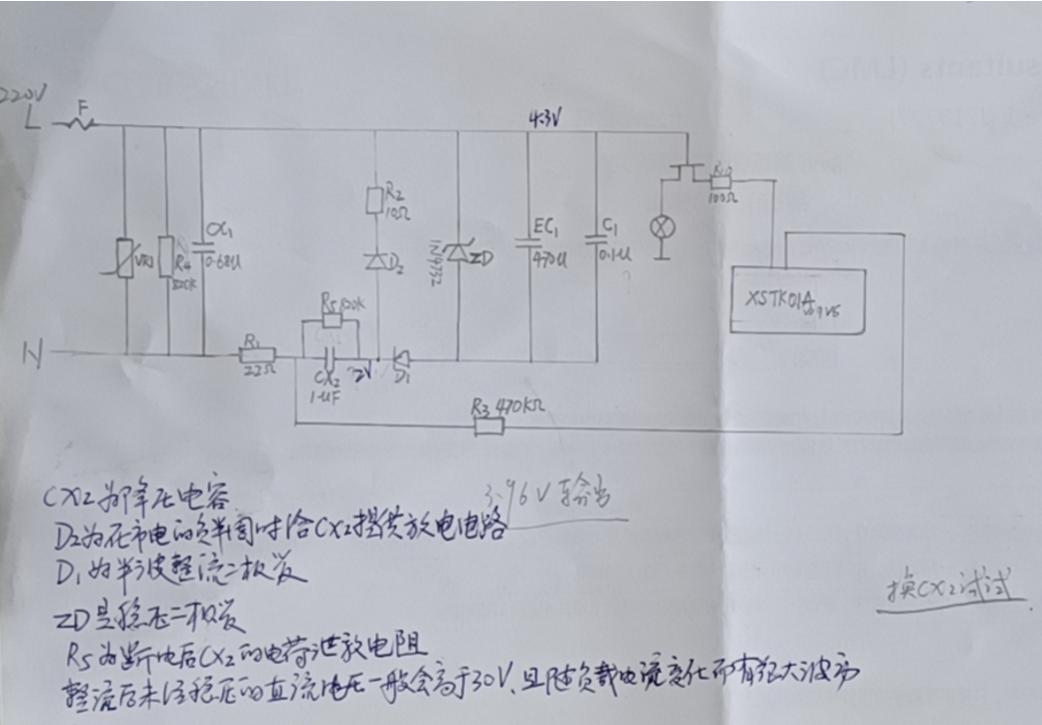 220V
F
L
4.3V
R2
10Ω
VR1
R4
CX1
0.68U
D2
ZD
EC1
470U
C1
0.1U
R10
100Ω
XSTK01A
N
R1
22Ω
R5 820K
CX2
1UF
2V
D1
R3 470KΩ
CX2为降压电容
3.96V输出
D2为在市电的负半周时给CX2提供放电电路
D1为半波整流二极管
换CX2试试
ZD是稳压二极管
R5为断电后CX2的电荷泄放电阻
整流后未经稳压的直流电压一般会高于30V、且随负载电流变化而有很大波动